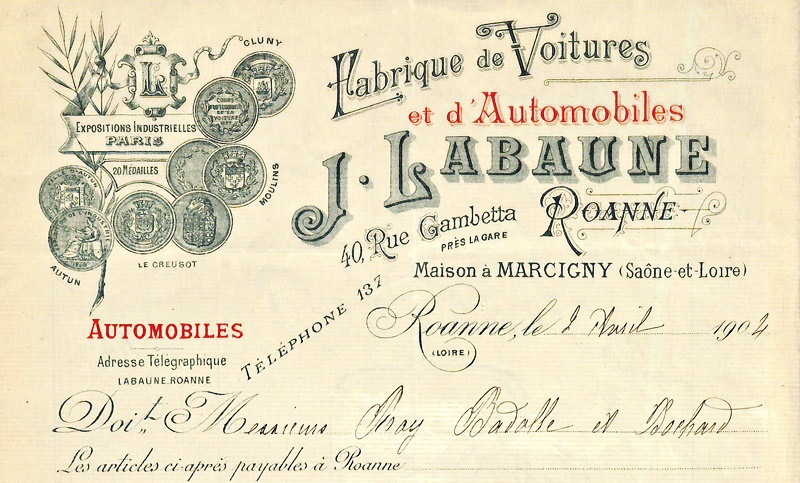 CLUNY
L
EXPOSITIONS INDUSTRIELLES
PARIS
20 MEDAILLES
MOULINS
LE CREUSOT
AUTUN
Fabrique de Voitures
et d'Automobiles
J. LABAUNE
40, Rue Gambetta
PRÈS LA GARE
ROANNE
Maison à MARCIGNY (Saône-et-Loire)
TÉLÉPHONE 137
AUTOMOBILES
Adresse Télégraphique
LABAUNE. ROANNE
Roanne, le 2 Avril 1904
(LOIRE)
Doit Messieurs Badolle et Bochard
Les articles ci-après payables à Roanne